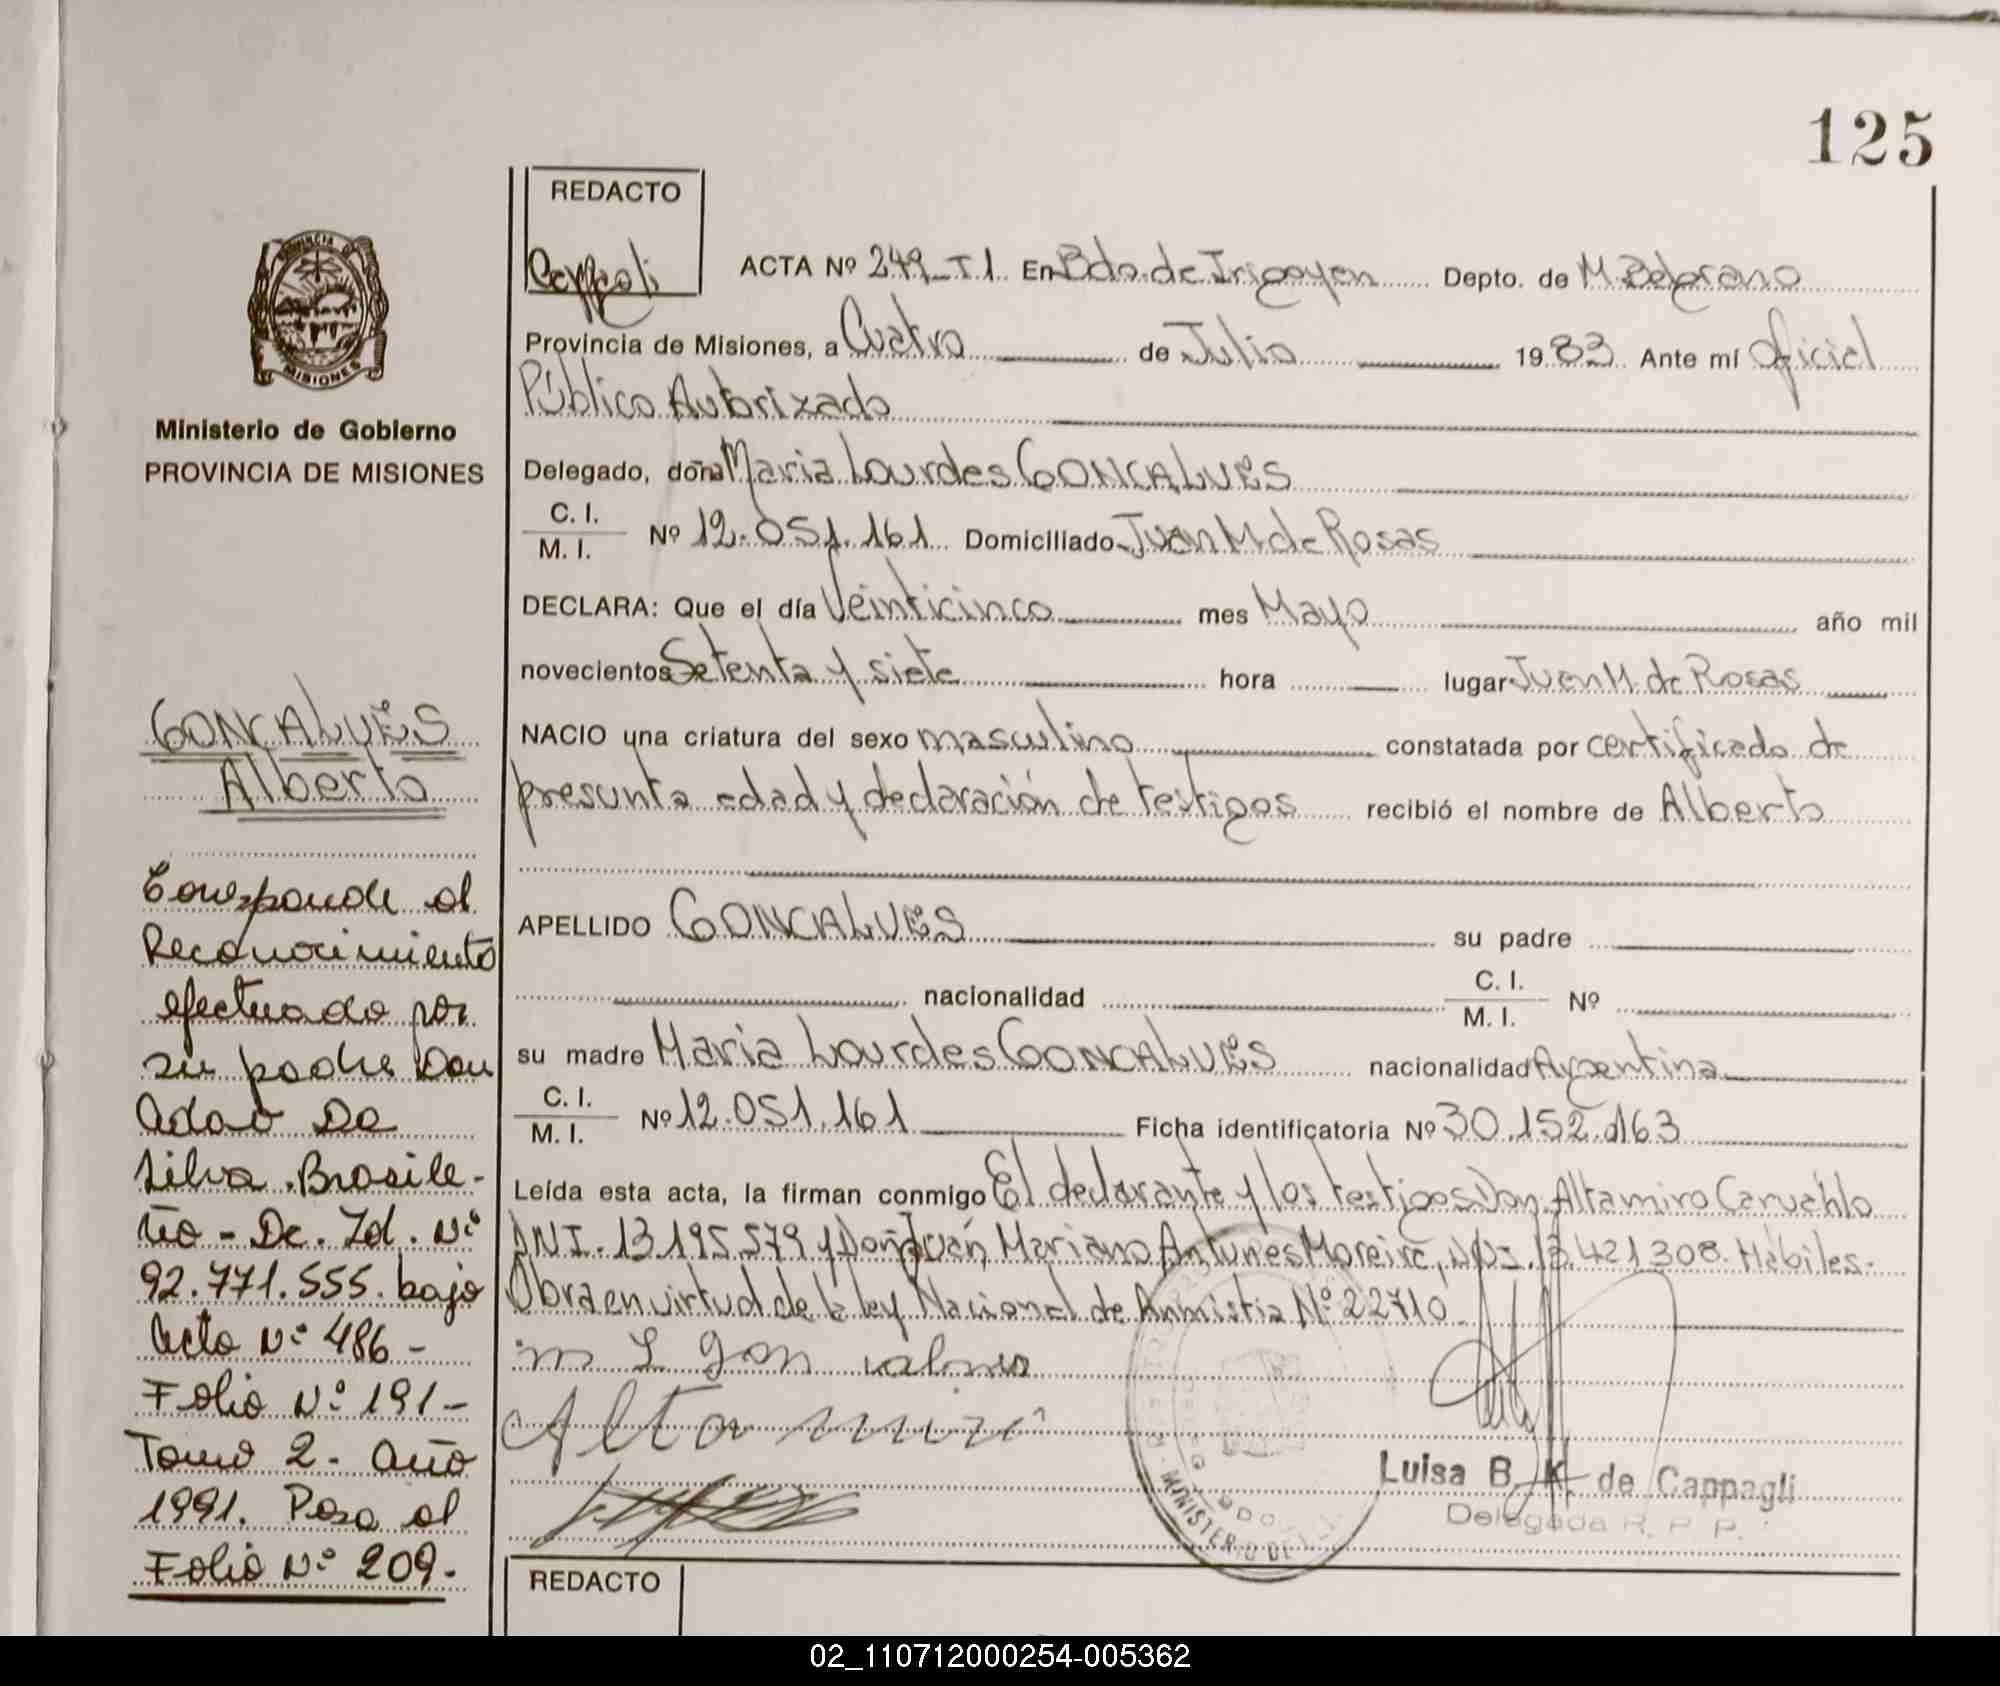 125
REDACTO
ACTA Nº 249-T1 En Bdo. de Irigoyen Depto. de M. Belgrano
Provincia de Misiones, a Cuatro de Julio 1983 Ante mí Oficial
Público Autorizado
Delegado, doña Maria Lourdes GONCALVES
C. I.
M. I. Nº 12.051.161 Domiciliado Juan M. de Rosas
DECLARA: Que el día Veinticinco mes Mayo año mil
novecientos Setenta y siete hora lugar Juan M. de Rosas
NACIO una criatura del sexo masculino constatada por certificado de
presunta edad y declaración de testigos recibió el nombre de Alberto
APELLIDO GONCALVES su padre
nacionalidad C. I.
M. I. Nº
su madre Maria Lourdes GONCALVES nacionalidad Argentina
C. I.
M. I. Nº 12.051.161 Ficha identificatoria Nº 30.152.163
Leída esta acta, la firman conmigo El declarante y los testigos Don Altamiro Carvahlo
DNI. 13.195.579 y Doñ Juan Mariano Antunes Moreira, DNI. 13.421.308. Hábiles.
Obra en virtud de la ley Nacional de Anmistia Nº 22710
Altamiro
Luisa B. K. de Cappagli
Delegada R. P. P.
MINISTERIO DE
REDACTO
MISIONES
Ministerio de Gobierno
PROVINCIA DE MISIONES
GONCALVES
Alberto
Corresponde al
Reconocimiento
efectuado por
su padre Don
Adao Da
Silva. Brasile-
ño - Dc. Id. Nº
92.771.555. bajo
Acta Nº 486 -
Folio Nº 191 -
Tomo 2 - Año
1991. Pasa al
Folio Nº 209 -
02_110712000254-005362